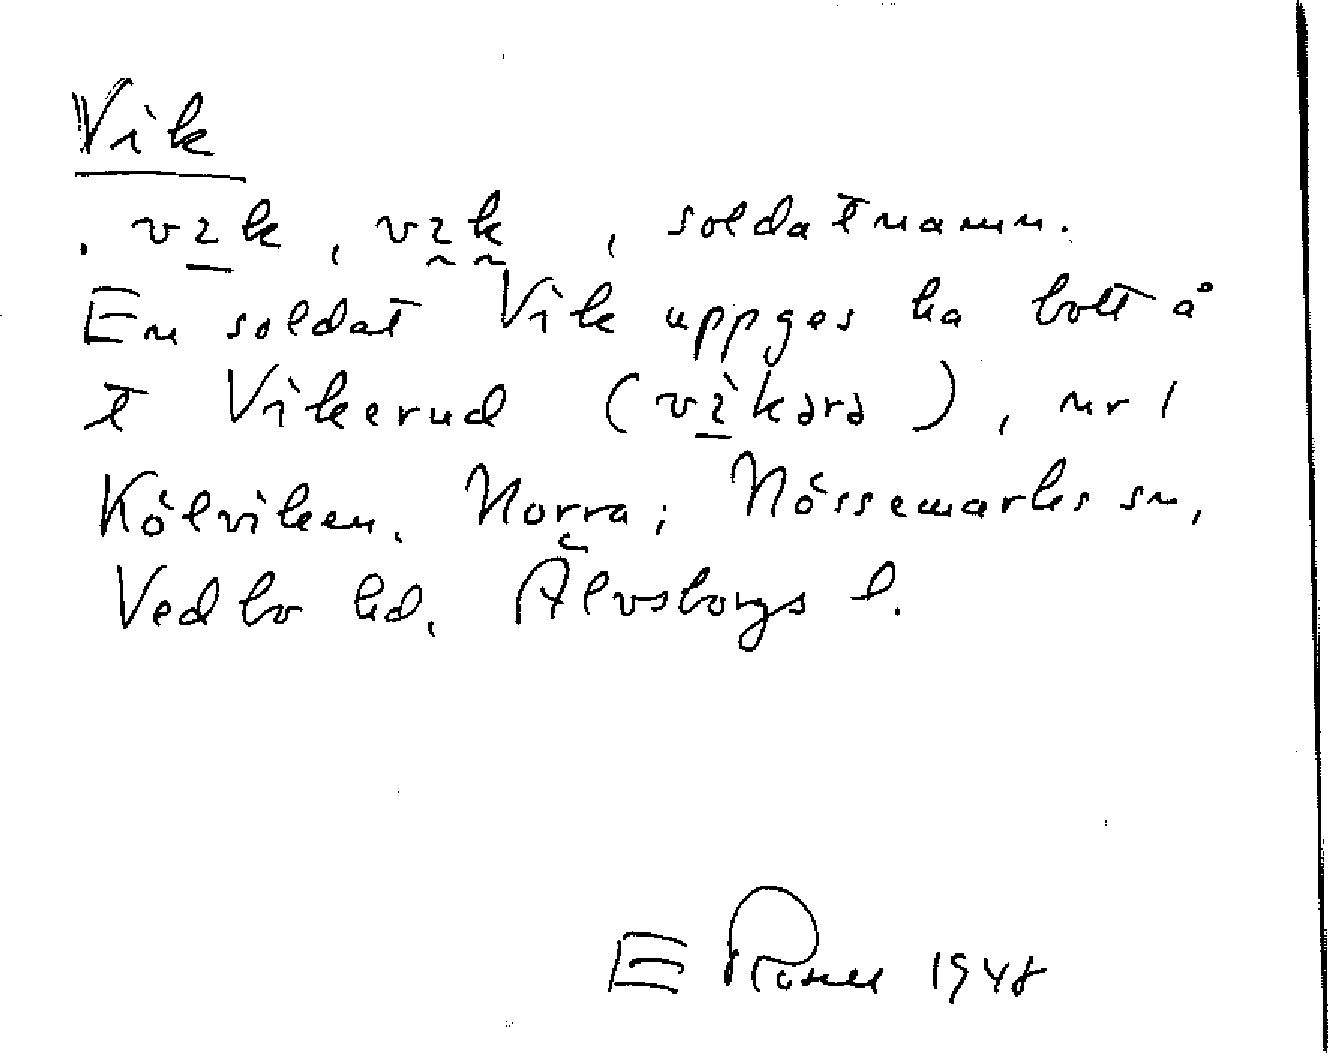 Vik
. vɩk, vɩk, soldatnamn.
En soldat Vik uppges ha bott å
t Vikerud (vɩ̀kərə), nr 1
Kölviken, Norra; Nössemarks sn,
Vedbo hd, Älvsborgs l.
E 1948